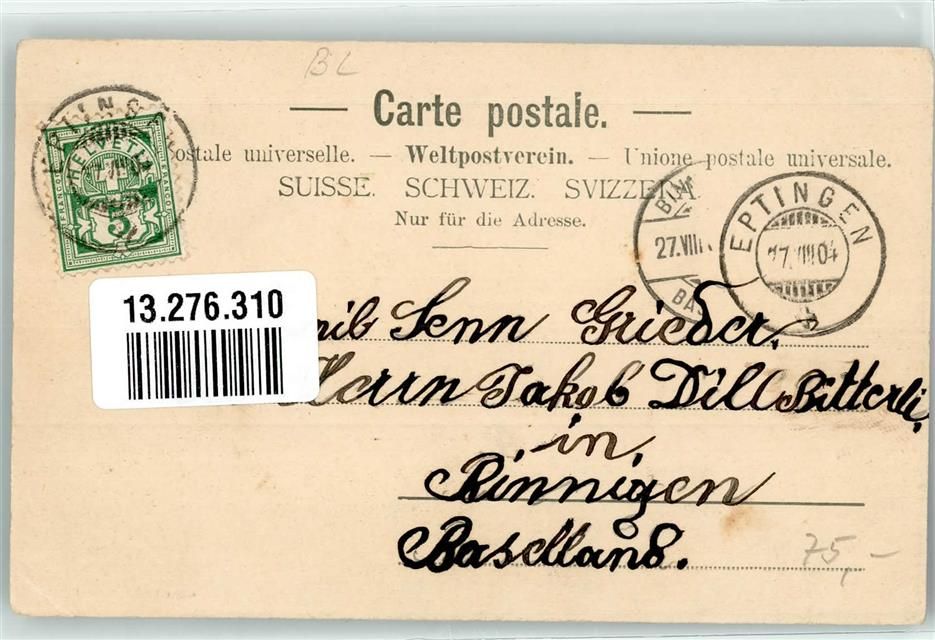 BL
Carte postale.
postale universelle. — Weltpostverein. — Unione postale universale.
SUISSE. SCHWEIZ. SVIZZERA.
Nur für die Adresse.
HELVETIA
5
27.VIII
EPTINGEN
27.VIII 04
13.276.310
Senn Grieder.
Herrn Jakob Dill Bitterli,
in,
Binnigen
Baselland.
75,-